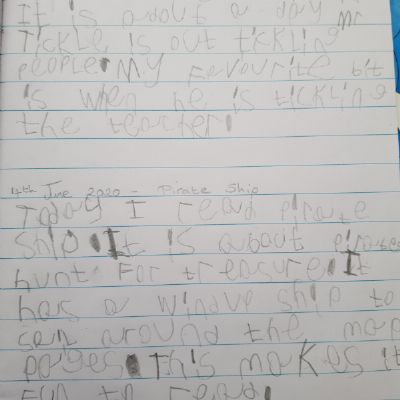 It is about a day Mr
Tickle is out tickling
people. My favourite bit
is when he is tickling
the teacher.
June 2020 - Pirate Ship
Today I read Pirate
Ship. It is about pirates
hunt for treasure. It
has a windup ship to
around the map
pages. This makes it
fun to read.